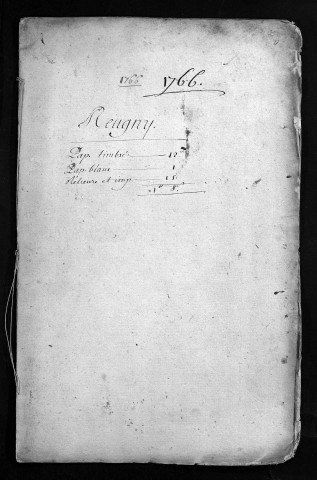 1766 1766.
Neugny.
Pap. timbré 12
Pap. blanc 1
Relieure et imp. 15
1 8.